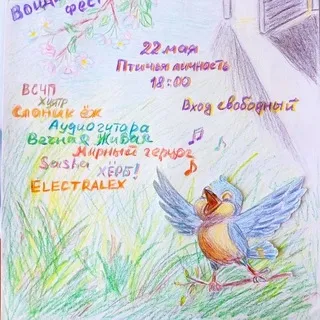 фест
22 мая
Птичья личность
18:00
Вход свободный
ВСЧП
Хуптр
Слоник ёж
Аудиогитара
Вечная Живая
Мирный герцог
Saisha ХЁРБ!
ELECTRALEX